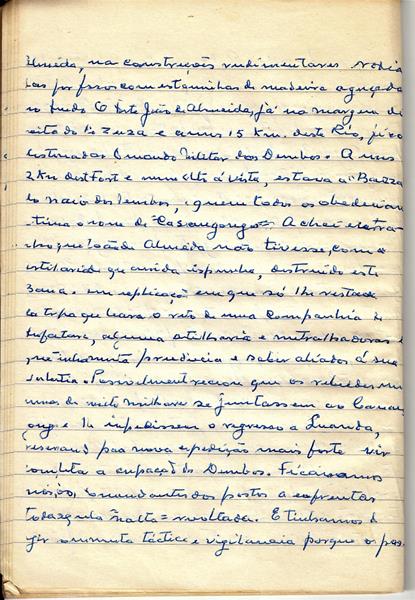 Almeida, na construções rudimentares rodia
das por fossos com estaminhas de madeira aguçada
no fundo. O Forte João de Almeida, já na margem di
reita do Rio Zuza e a uns 15 Km. deste Rio, já o
Comando Militar dos Dembos. A uns
2 Km dest Forte e à vista, estava a "Banza
do raio dos Dembos, a quem todos os obedeciam
tinha o nome de "Cazuangongo". Achei estra
nho que João de Almeida não tivesse, com a
artilharia que consigo dispunha, destruido esta
Banza. em que só lhe restava
da tropa que levara o resto de uma Companhia de
Infantaria, alguma artilharia e metralhadoras e
que tinha muita prudencia e saber aliados á sua
valentia. Possivelmente receou que os rebeldes nu
uns de oito milhares se juntassem ao Cazuan
gongo e lhe impedissem o regresso a Luanda,
reservando para nova expedição mais forte vir
completar a ocupação dos Dembos. Ficavamos
nós, os comandantes dos postos a enfrentar
toda aquela malta revoltada. E tinhamos de
gir com muita táctica e vigilancia porque os pos